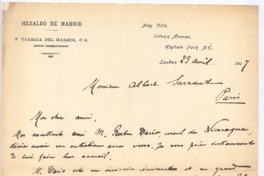 HERALDO DE MADRID
F. TARRIDA DEL MARMOL, C. E.
LONDON CORRESPONDENT
May Villa,
Avenue,
Highams Park N.E.
London 23 Avril 1907
Monsieur Albert Sarraut
Paris
Mon cher ami,
Mon excellent ami M. Ruben Dario, consul du Nicaragua,
désire avoir un entretien avec vous. Je vous prie instamment
de lui faire bon accueil.
M. Dario est un écrivain éminent et un grand